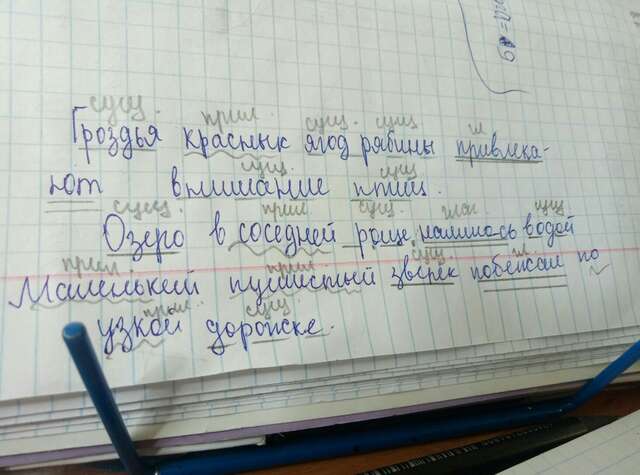 сущ. прил. сущ. сущ. гл
Гроздья красных ягод рябины привлека-
сущ. сущ.
ют внимание птиц.
сущ. прил. сущ. глаг сущ
Озеро в соседней роще налилось водой
прил. прил. сущ. гл
Маленький пушистый зверёк побежал по
прил. сущ.
узкой дорожке.